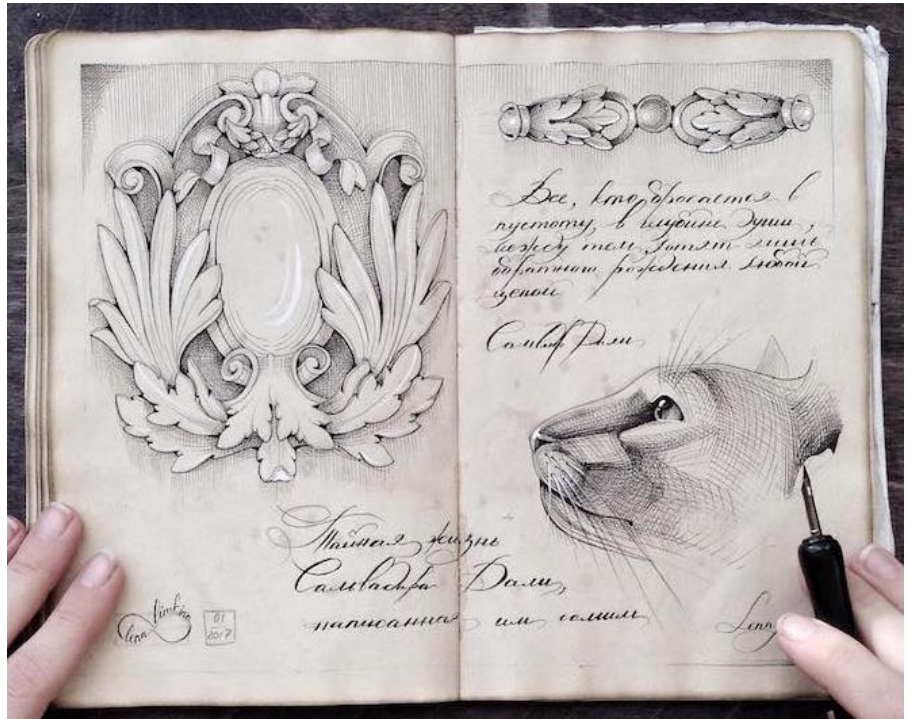 Все, кто бросается в
пустоту, в глубине души,
между тем хотят лишь
обратного рождения любой
ценой
Сальвадор Дали
Тайная жизнь
Сальвадора Дали,
написанная им самим
Lena
01
2017
Lena